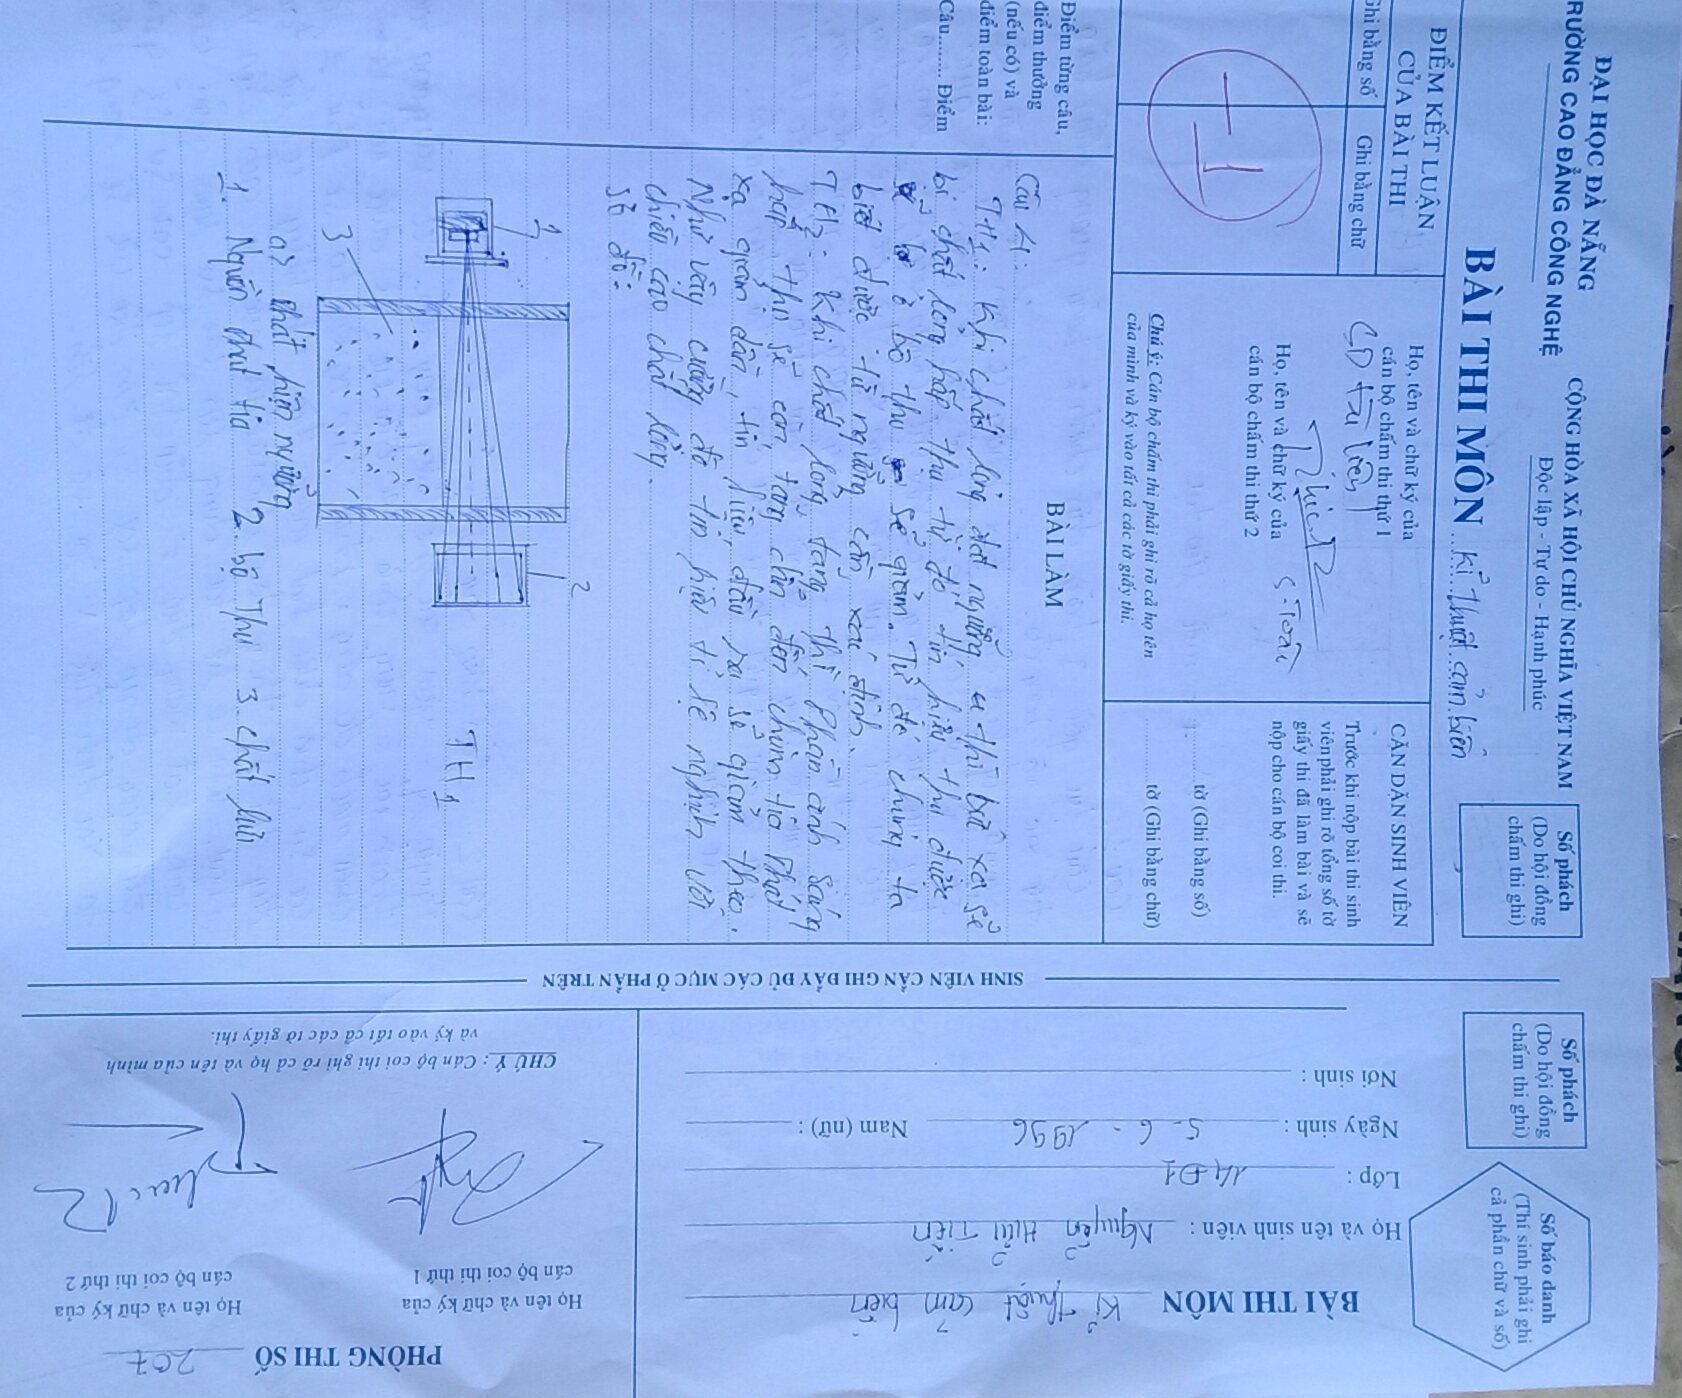 ĐẠI HỌC ĐÀ NẴNG
RƯỜNG CAO ĐẲNG CÔNG NGHỆ
CỘNG HÒA XÃ HỘI CHỦ NGHĨA VIỆT NAM
Độc lập - Tự do - Hạnh phúc
BÀI THI MÔN ... Kĩ thuật cảm biến
Số phách
(Do hội đồng
chấm thi ghi)
ĐIỂM KẾT LUẬN
CỦA BÀI THI
Ghi bằng số
Ghi bằng chữ
Họ, tên và chữ ký của
cán bộ chấm thi thứ 1
Họ, tên và chữ ký của
cán bộ chấm thi thứ 2
Chú ý: Cán bộ chấm thi phải ghi rõ cả họ tên
của mình và ký vào tất cả các tờ giấy thi.
CĂN DẶN SINH VIÊN
Trước khi nộp bài thi sinh
viên phải ghi rõ tổng số tờ
giấy thi đã làm bài và sẽ
nộp cho cán bộ coi thi.
tờ (Ghi bằng số)
tờ (Ghi bằng chữ)
Điểm từng câu,
điểm thưởng
(nếu có) và
điểm toàn bài:
Câu....... Điểm
BÀI LÀM
Câu 4:
TH1: Khi chất lỏng đạt ngưỡng thì bức xạ sẽ
bị chất lỏng hấp thụ từ đó tín hiệu thu được
ở bộ thu sẽ giảm. Từ đó chúng ta
biết được từ ngưỡng cần xác định.
TH2: Khi chất lỏng tăng thì phần ánh sáng
hấp thụ sẽ càng tăng cho đến chùm tia phát
xạ giảm dần, tín hiệu đầu ra sẽ giảm theo.
Như vậy cường độ tín hiệu tỉ lệ nghịch với
chiều cao chất lỏng.
Sơ đồ:
1
2
3
TH1
a) Phát hiện ngưỡng
1. Nguồn phát tia 2. bộ thu 3. chất lưu
SINH VIÊN CẦN GHI ĐẦY ĐỦ CÁC MỤC Ở PHẦN TRÊN
Số báo danh
(Thí sinh phải ghi
cả phần chữ và số)
Số phách
(Do hội đồng
chấm thi ghi)
BÀI THI MÔN Kĩ thuật cảm biến
Họ và tên sinh viên : Nguyễn Hữu Tiến
Lớp : 14Đ1
Ngày sinh : 5-6-1996 Nam (nữ) :
Nơi sinh :
PHÒNG THI SỐ 207
Họ tên và chữ ký của
cán bộ coi thi thứ 1
Họ tên và chữ ký của
cán bộ coi thi thứ 2
CHÚ Ý : Cán bộ coi thi ghi rõ cả họ và tên của mình
và ký vào tất cả các tờ giấy thi.